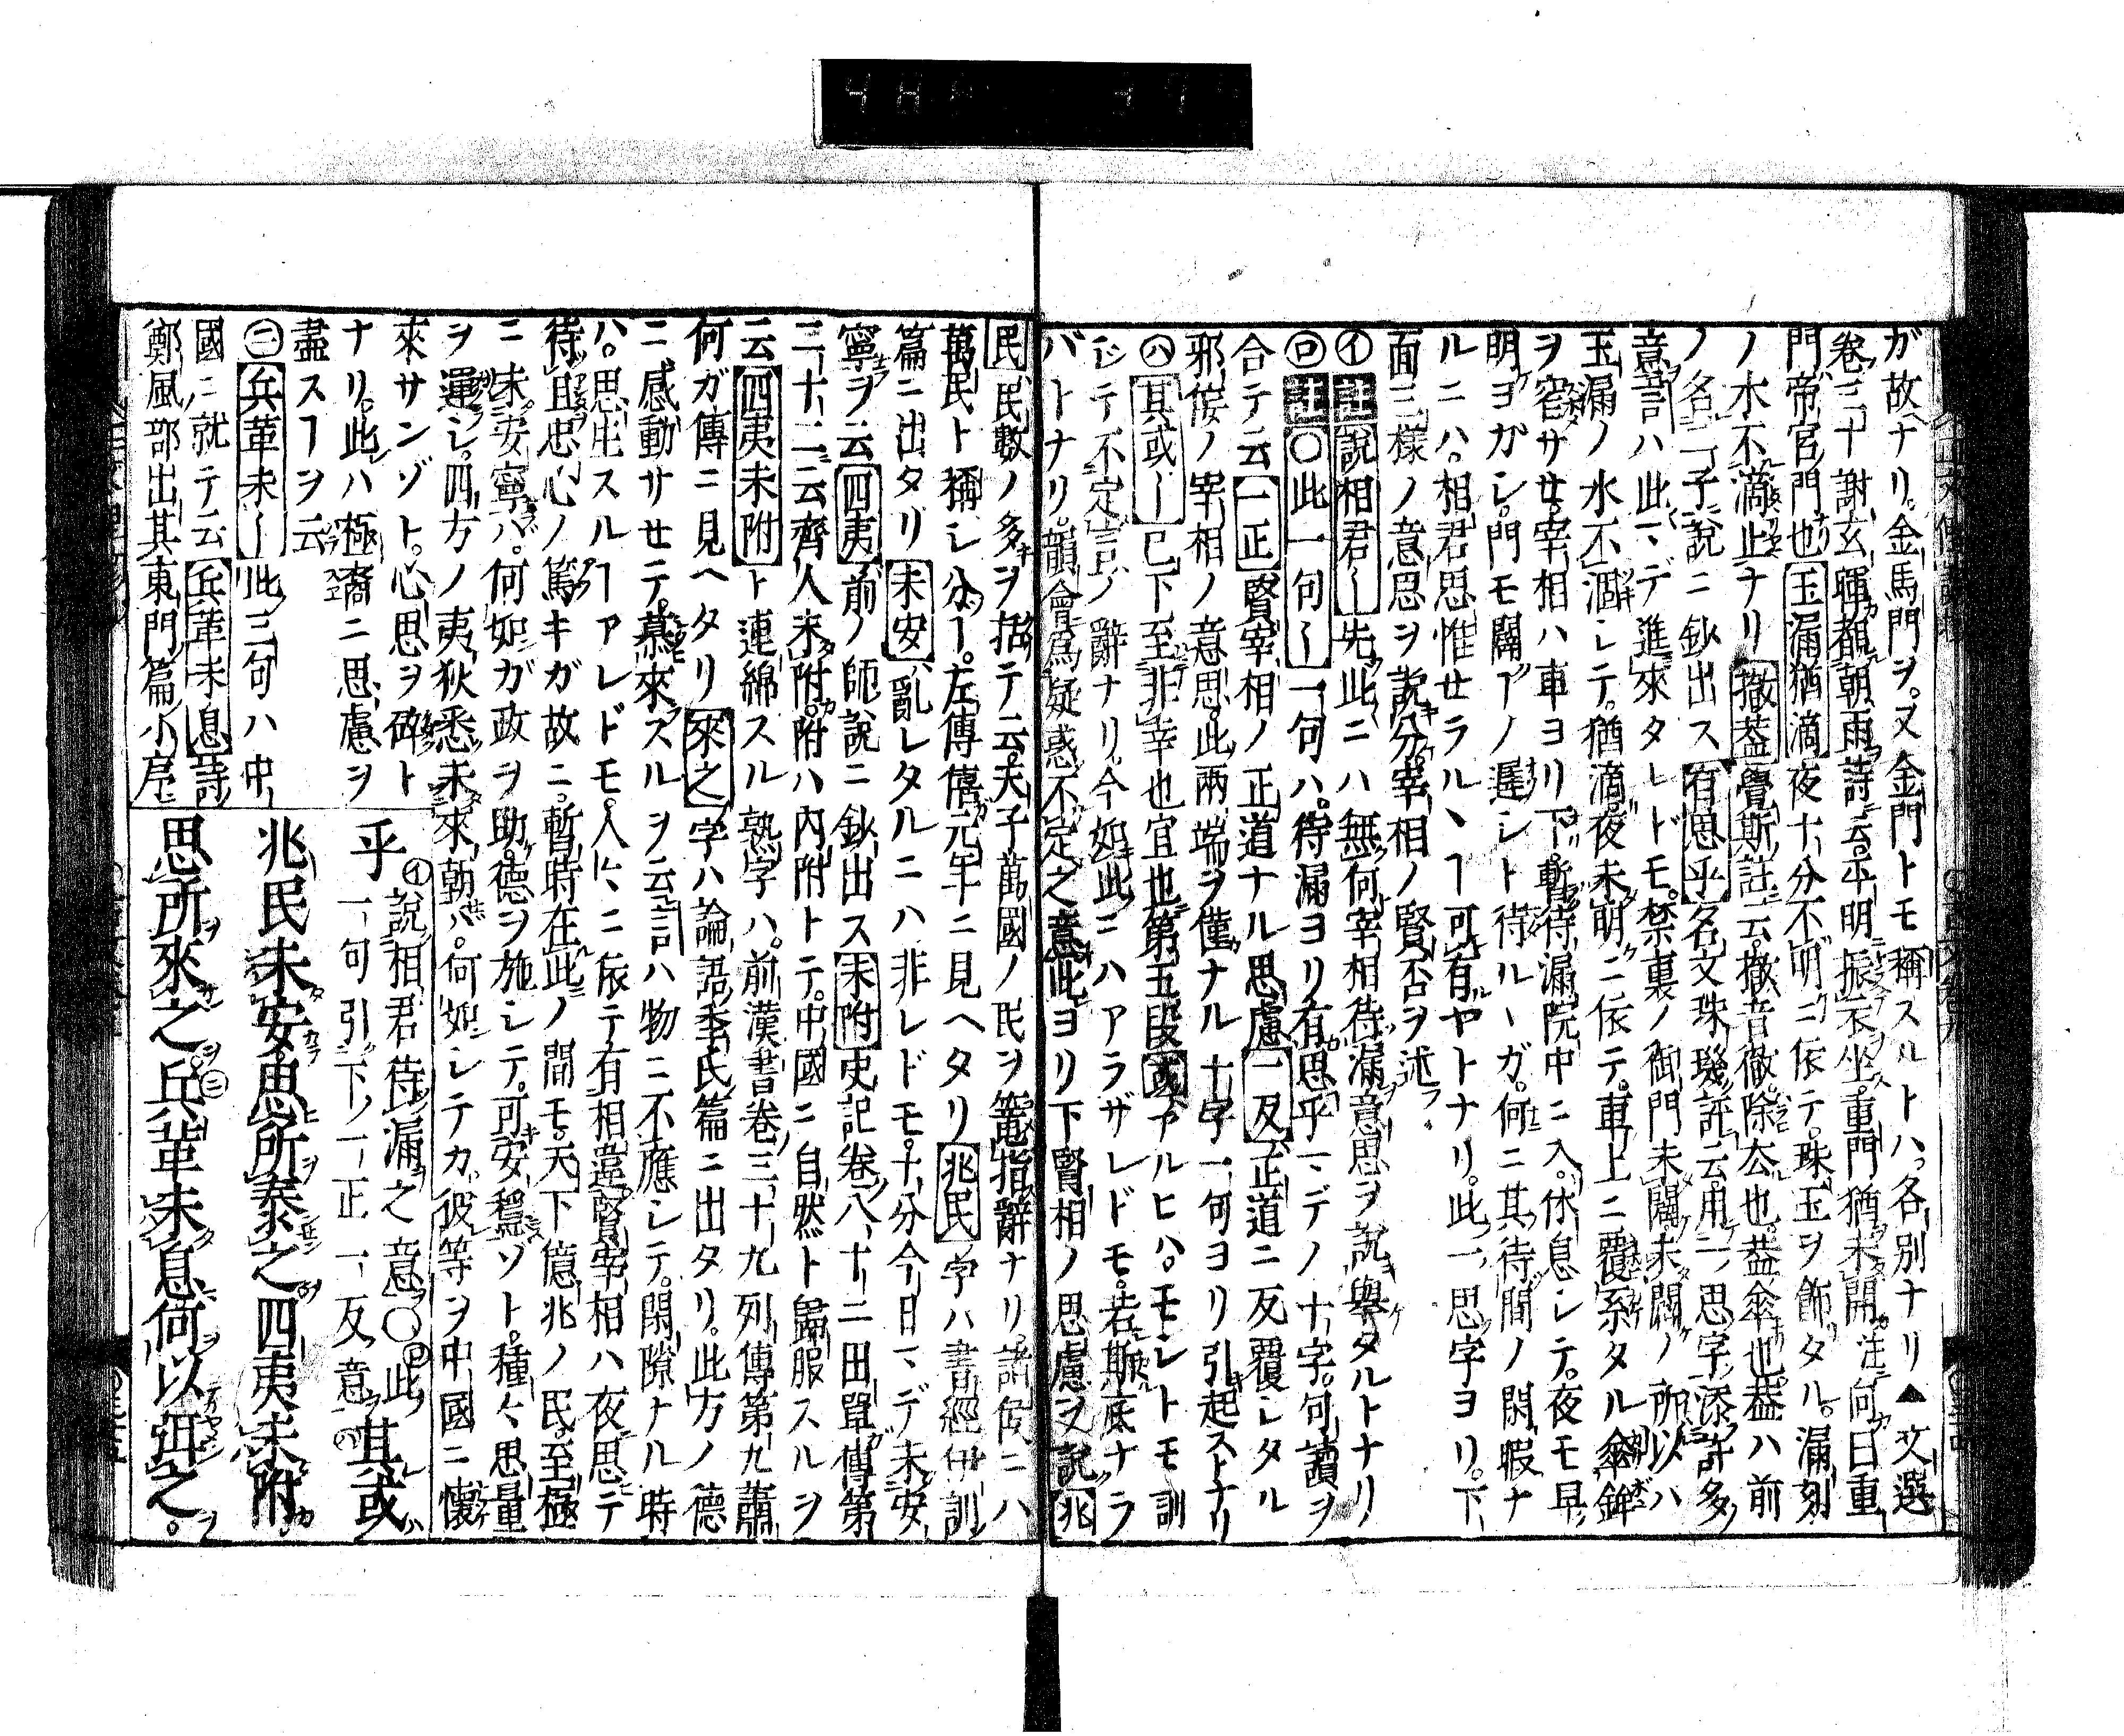 ガ故ナリ。金馬門ヲ。又金門トモ稱スルトハ。各別ナリ▲文選
卷三十謝玄暉觀朝雨詩云。平明振衣坐。重門猶未開注向曰重
門帝宮門也玉漏猶滴夜十分不明ニ依テ。珠玉ヲ飾タル。漏刻
ノ水不滴止ナリ撤蓋疊斯註云。撤音徹。除去也。蓋傘也。蓋ハ前
ノ名二子說ニ鈔出ス有思乎名文珠璣評云。用二思字添許多
意言ハ此ヽデ進來タレドモ。禁裏ノ御門未闢未闢ノ所以ハ
玉漏ノ水不涸シテ。猶滴。夜未明ニ依テ。車上ニ覆系タル傘鉾
ヲ窄サせ。宰相ハ車ヨリ下。暫待漏院中ニ入。休息シテ。夜モ早
明ヨガシ。門モ闢アノ遲シト待ルヽガ。何ニ其待間ノ閑暇ナ
ルニハ。相君思惟セラルヽヿ可有ヤトナリ。此一思字ヨリ。下
面三樣ノ意思ヲ說分。宰相ノ賢否ヲ述。
㋑註說相君〡先此ニハ無何宰相待漏意思ヲ說擧タルトナリ
㋺註〇此一句〡一句ハ。待漏ヨリ有思乎ヽデノ十字。句讀ヲ
合テ云一正賢宰相ノ正道ナル思慮一反正道ニ反覆シタル
邪佞ノ宰相ノ意思。此兩端ヲ僅ナル十字一句ヨリ引起ストナリ
㋩其或〡已下至非幸也宜也第五段或アルヒハ。モシトモ訓
ジテ不定言ノ辭ナリ。今如此ニハアラザレドモ。若斯底ナラ
バトナリ。韻會爲疑惑不定之意此ヨリ下賢相ノ思慮ヲ說兆
民民數ノ多ヲ括テ云。天子萬國ノ民ヲ篭指辭ナリ。諸侯ニハ
萬民ト稱シ分ヿ。左傳僖元年ニ見ヘタリ兆民字ハ書經伊訓
篇ニ出タリ未安亂レタルニハ非レドモ。十分今日ヽデ未安
寧ヲ云四夷前ノ師說ニ鈔出ス未附史記卷八十二田單傳第
二十二云齊人未附。附ハ內附トテ。中國ニ自然ト歸服スルヲ
云四夷未附ト連綿スル熟字ハ。前漢書卷三十九列傳第九蕭
何ガ傳ニ見ヘタリ來之字ハ論語季氏篇ニ出タリ。此方ノ德
ニ感動サセテ。慕來スルヲ云言ハ物ニ不應シテ。閑隙ナル時
ハ。思出スルヿアレドモ。人〻ニ依テ有相違賢宰相ハ夜思テ
待。且忠心ノ篤キガ故ニ。暫時在此ノ間モ。天下億兆ノ民。至極
ニ未安寧ハ。何如ガ政ヲ助。德ヲ施シテ。可安穩ゾト。種〻思量
ヲ運シ。四方ノ夷狄悉未來朝ハ。何如シテカ。彼等ヲ中國ニ懷
來サンゾト。心思ヲ碎ト
ナリ。此ハ極裔ニ思慮ヲ
盡スヿヲ云
㊁兵革未〡此三句ハ中
國ニ就テ云兵革未息詩
鄭風部出其東門篇小序
乎㋑說相君待漏之意〇㋺此
一句引下ノ一正一反意㋩其或
兆民未安。思所泰之。四夷未附。
思所來之。㊁兵革未息。何以弭之。